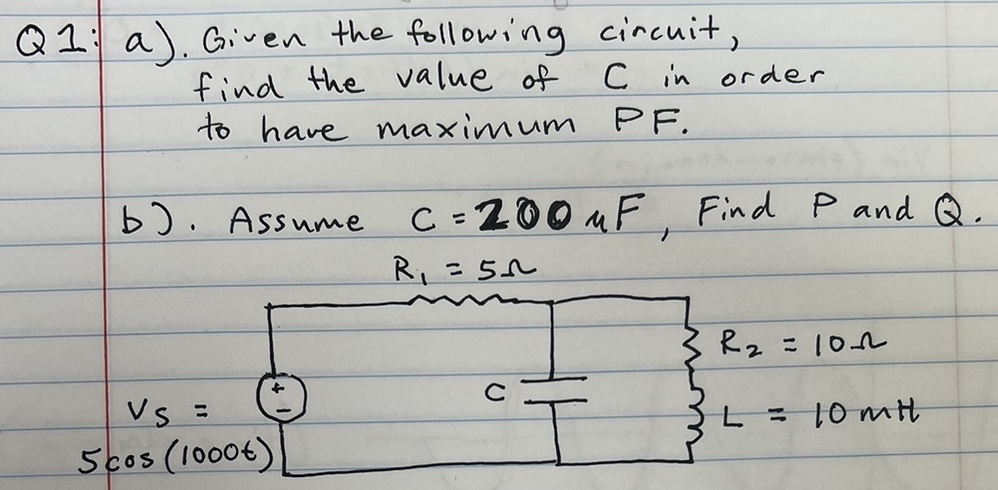 Q1: a). Given the following circuit,
find the value of C in order
to have maximum PF.
b). Assume C = 200 μF, Find P and Q.
R₁ = 5Ω
R₂ = 10Ω
+
−
C
Vs =
5cos(1000t)
L = 10 mH